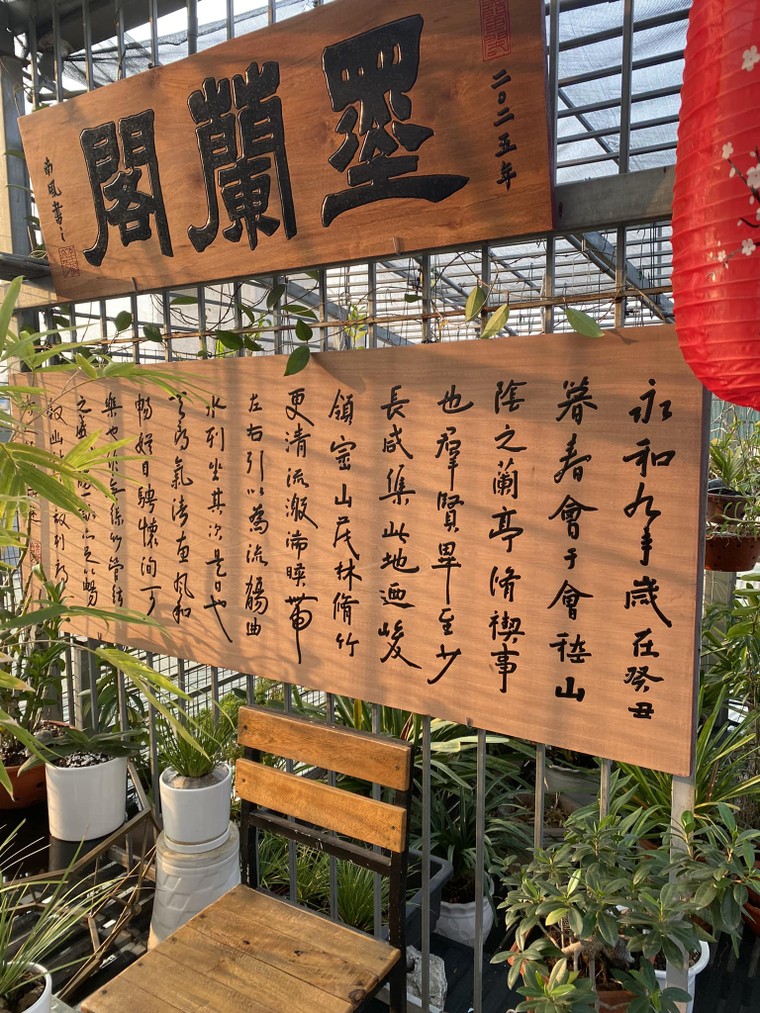 二〇二五年
墨蘭閣
南風書之
永和九年歲在癸丑
暮春會于會稽山
陰之蘭亭脩禊事
也羣賢畢至少
長咸集此地迺峻
領崇山茂林脩竹
更清流激湍暎帶
左右引以為流觴曲
水列坐其次是日也
天朗氣清惠風和
暢娛目騁懷洵可
樂也雖無絲竹管絃
之盛足以暢
敘幽故列